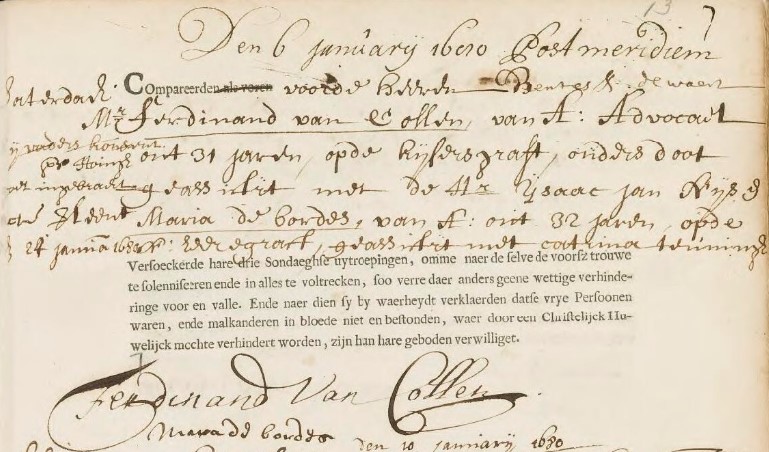 13 7
Den 6 January 1680 Post meridiem
Saterdach
Compareerden als voren voorde heeren
Mr. Ferdinand van Collen, van A: Advocaet
out 31 jaren, opde Kysersgraft, ouders doot
geassisteert met de Hr Ysaac Jan Nys, &
Maria de bordes, van A: out 32 jaren, opde
24 Janua 1680 heeregraft, geassisteert met Catrina
Versoeckerde hare drie Sondaeghse uytroepingen, omme naer de selve de voorsz trouwe
te solenniseeren ende in alles te voltrecken, soo verre daer anders geene wettige verhinde-
ringe voor en valle. Ende naer dien sy by waerheydt verklaerden datse vrye Persoonen
waren, ende malkanderen in bloede niet en bestonden, waer door een Christelijck Hu-
welijck mochte verhindert worden, zijn han hare geboden verwilliget.
Ferdinand Van Collen.
Maria de bordes
Den 10 January 1680